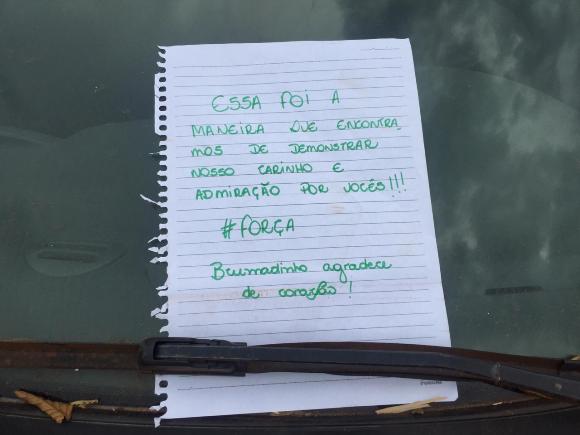 ESSA FOI A
MANEIRA QUE ENCONTRA
MOS DE DEMONSTRAR
NOSSO CARINHO E
ADMIRAÇÃO POR VOCÊS!!!
#FORÇA
Brumadinho agradece
de coração!